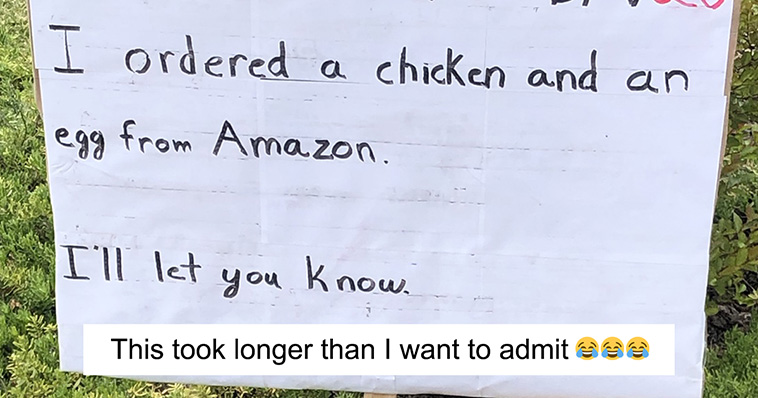 I ordered a chicken and an
egg from Amazon.
I'll let you know.
This took longer than I want to admit 😂😂😂